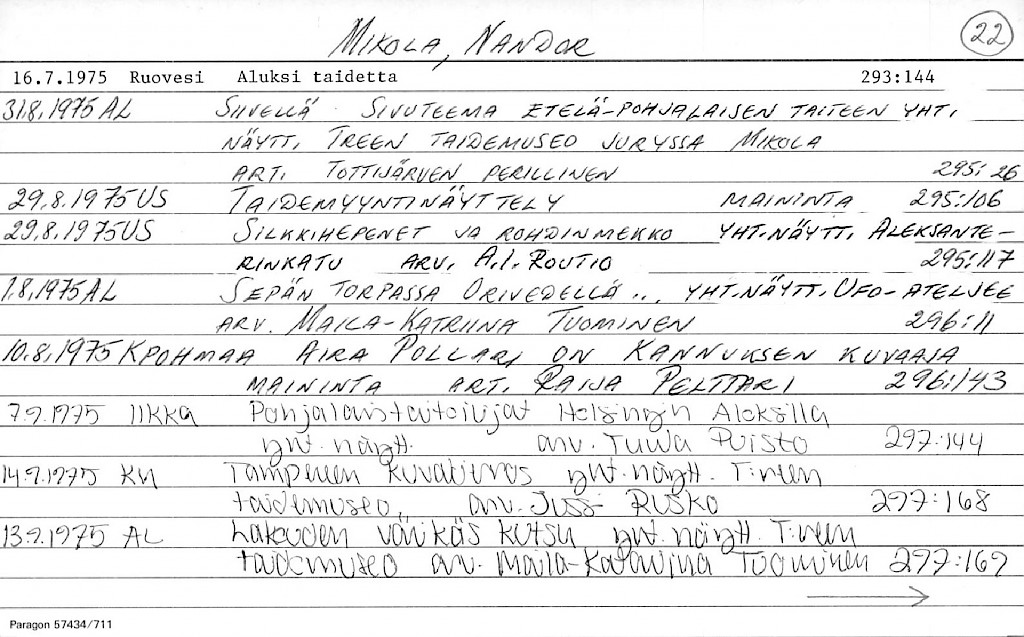 MIKOLA, NANDOR
22
16.7.1975 Ruovesi Aluksi taidetta 293:144
31.8.1975 AL SIIVELLÄ SIVUTEEMA ETELÄ-POHJALAISEN TAITEEN YHT.
NÄYTT. TREEN TAIDEMUSEO JURYSSA MIKOLA
ART. TOTTIJÄRVEN PERILLINEN 295:26
29.8.1975 US TAIDEMYYNTINÄYTTELY MAININTA 295:106
29.8.1975 US SILKKIHEPENET JA ROHDINMEKKO YHT.NÄYTT. ALEKSANTE-
RINKATU ARV. A.I. ROUTIO 295:117
1.8.1975 AL SEPÄN TORPASSA ORIVEDELLÄ... YHT.NÄYTT. UFO-ATELJEE
ARV. MAILA-KATRIINA TUOMINEN 296:11
10.8.1975 KPOHMAA AIRA POLLARI ON KANNUKSEN KUVAAJA
MAININTA ART. RAIJA PELTTARI 296:143
7.9.1975 IIKKA Pohjalaistaiteilijat Helsingin Aleksilla
yht.näytt. arv. Tuula Puisto 297:144
14.9.1975 KU Tampereen kuvatieros yht.näytt. T:reen
taidemuseo, arv. Jussi Rusko 297:168
13.9.1975 AL Lakeuden värikäs kutsu yht.näytt. T:reen
taidemuseo arv. Maila-Katariina Tuominen 297:169
Paragon 57434/711